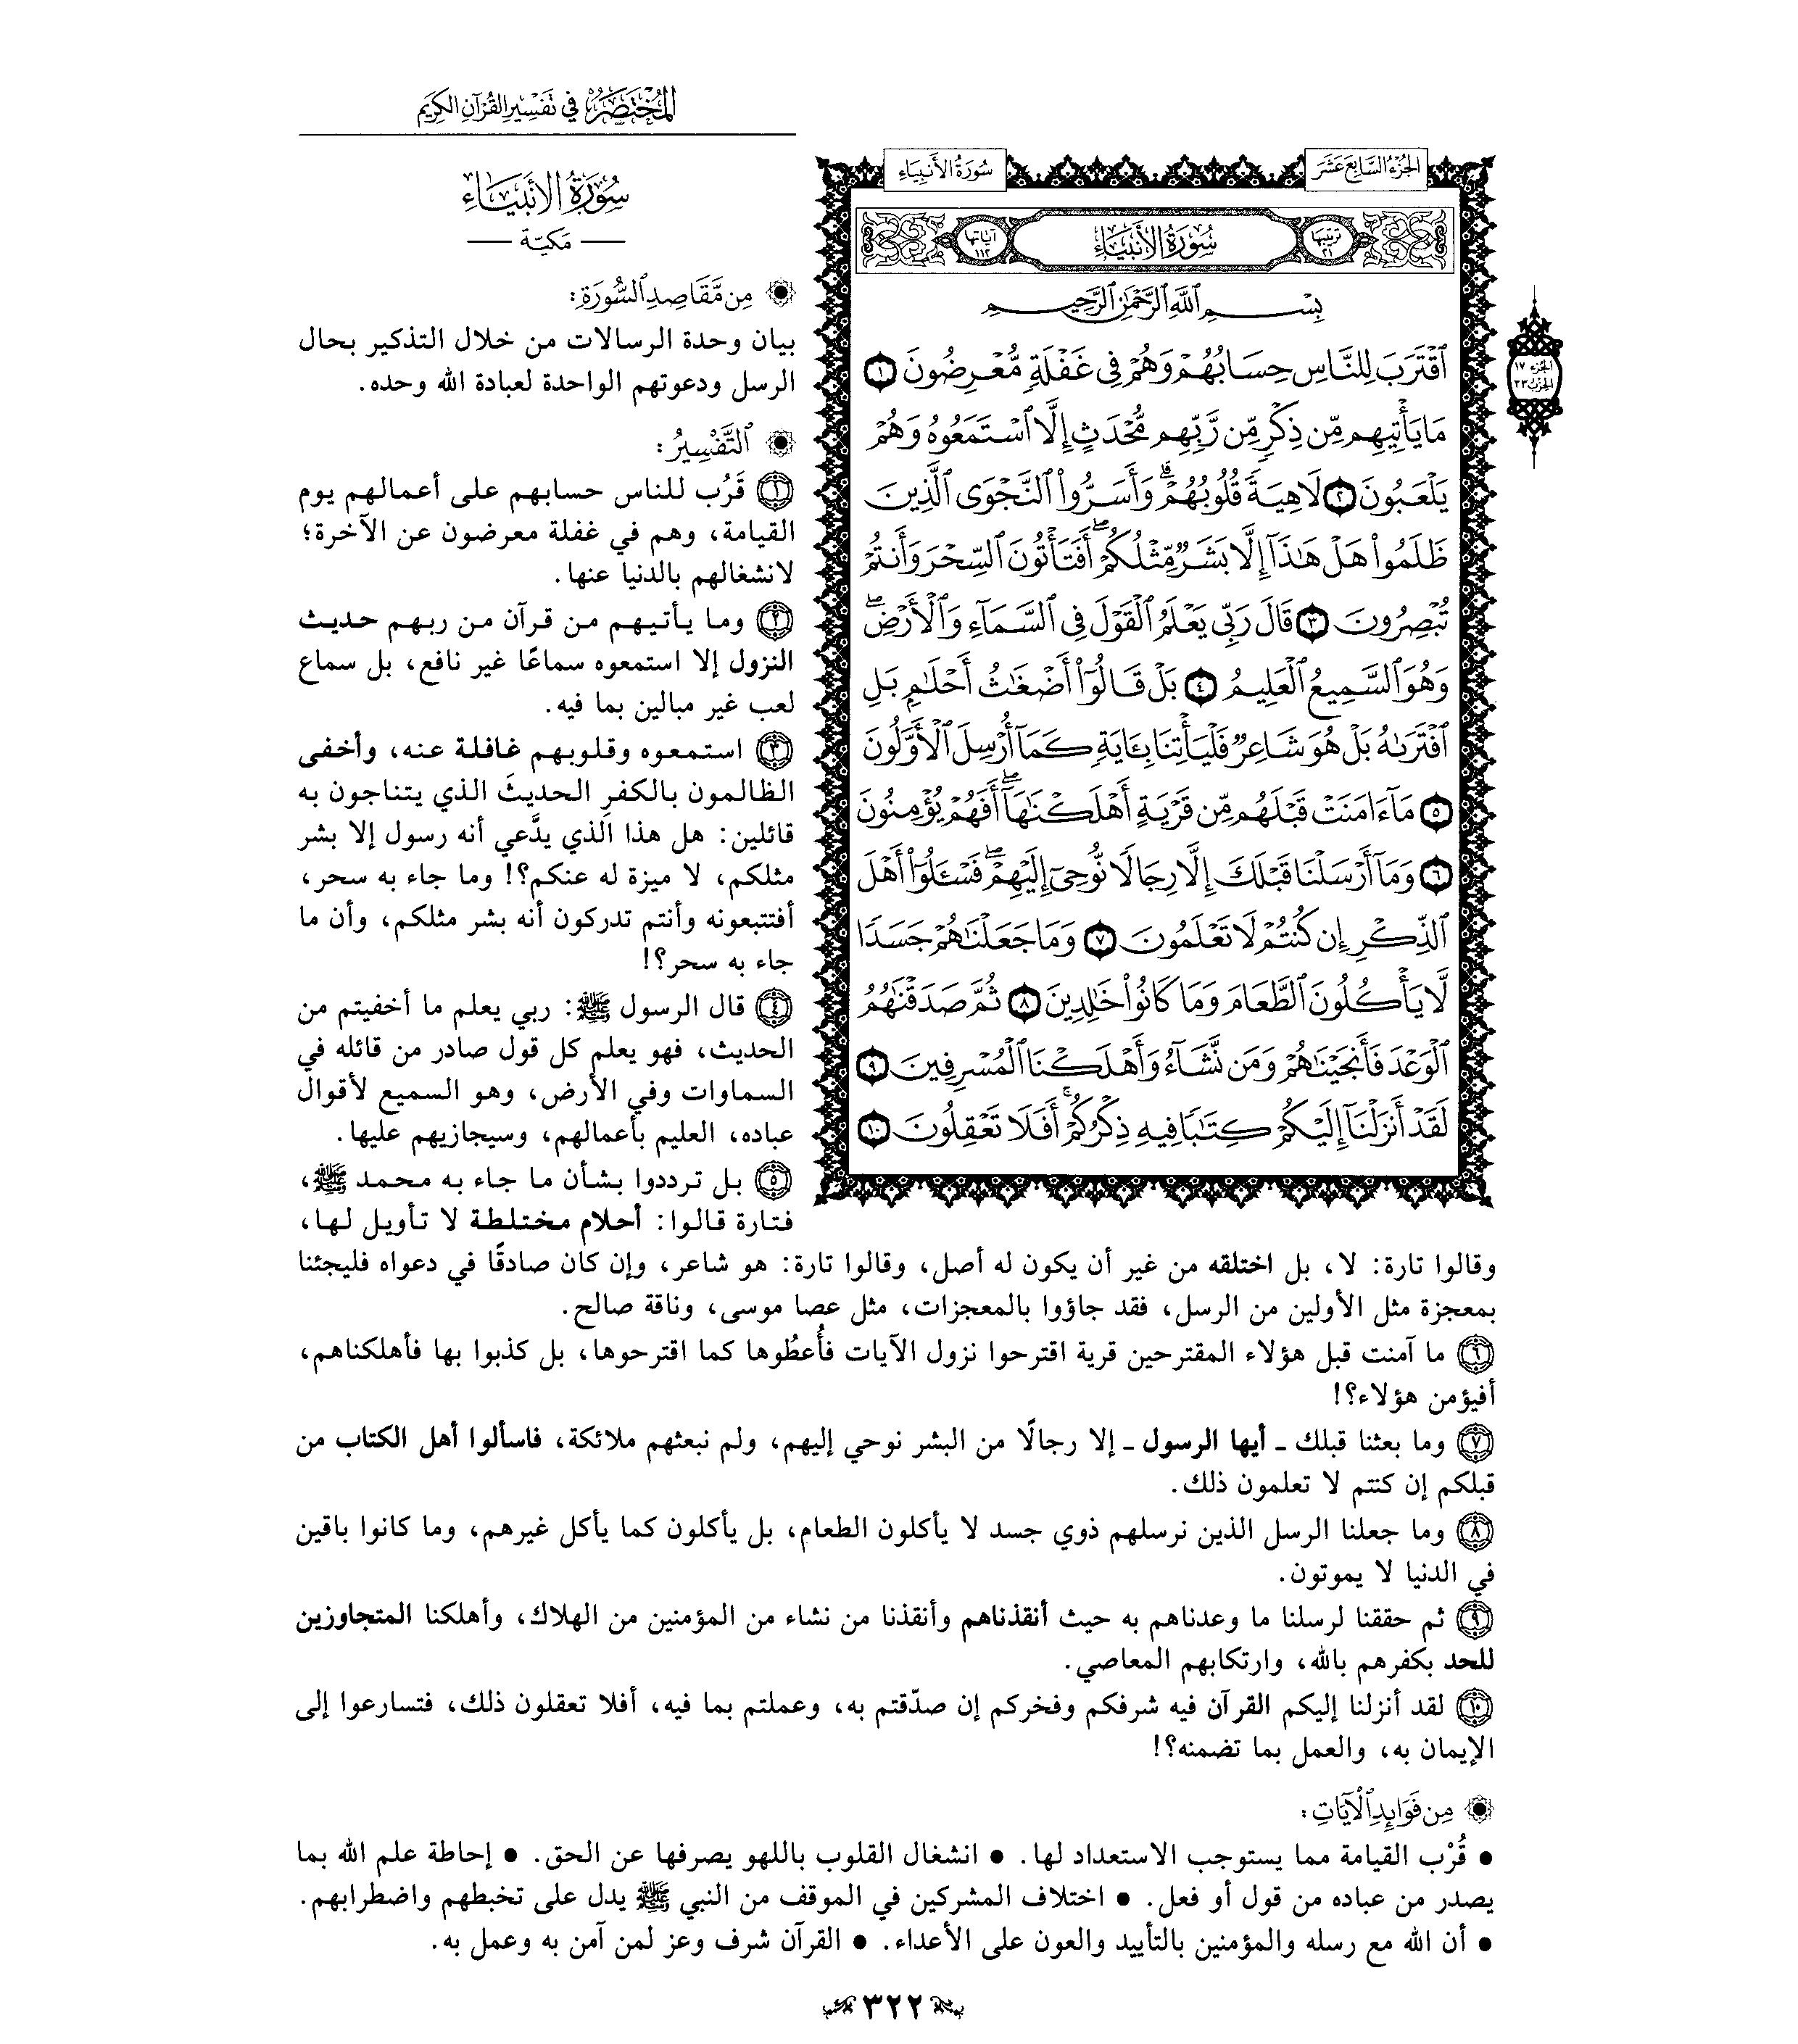 المُخْتَصَرُ فِي تَفْسِيرِ القُرْآنِ الكَرِيمِ
الجُزْءُ السَّابِعَ عَشَرَ
سُورَةُ الأَنبِيَاءِ
ترتيبها ٢١
سُورَةُ الأَنبِيَاءِ
آياتها ١١٢
بِسْمِ ٱللَّهِ ٱلرَّحْمَٰنِ ٱلرَّحِيمِ
ٱقْتَرَبَ لِلنَّاسِ حِسَابُهُمْ وَهُمْ فِي غَفْلَةٖ مُّعْرِضُونَ ١
مَا يَأْتِيهِم مِّن ذِكْرٖ مِّن رَّبِّهِم مُّحْدَثٍ إِلَّا ٱسْتَمَعُوهُ وَهُمْ
يَلْعَبُونَ ٢ لَاهِيَةٗ قُلُوبُهُمْۗ وَأَسَرُّواْ ٱلنَّجْوَى ٱلَّذِينَ
ظَلَمُواْ هَلْ هَٰذَآ إِلَّا بَشَرٞ مِّثْلُكُمْۖ أَفَتَأْتُونَ ٱلسِّحْرَ وَأَنتُمْ
تُبْصِرُونَ ٣ قَالَ رَبِّي يَعْلَمُ ٱلْقَوْلَ فِي ٱلسَّمَآءِ وَٱلْأَرْضِۖ
وَهُوَ ٱلسَّمِيعُ ٱلْعَلِيمُ ٤ بَلْ قَالُوٓاْ أَضْغَٰثُ أَحْلَٰمِۭ بَلِ
ٱفْتَرَىٰهُ بَلْ هُوَ شَاعِرٞ فَلْيَأْتِنَا بِـَٔايَةٖ كَمَآ أُرْسِلَ ٱلْأَوَّلُونَ
٥ مَآ ءَامَنَتْ قَبْلَهُم مِّن قَرْيَةٍ أَهْلَكْنَٰهَآۖ أَفَهُمْ يُؤْمِنُونَ
٦ وَمَآ أَرْسَلْنَا قَبْلَكَ إِلَّا رِجَالٗا نُّوحِيٓ إِلَيْهِمْۖ فَسْـَٔلُوٓاْ أَهْلَ
ٱلذِّكْرِ إِن كُنتُمْ لَا تَعْلَمُونَ ٧ وَمَا جَعَلْنَٰهُمْ جَسَدٗا
لَّا يَأْكُلُونَ ٱلطَّعَامَ وَمَا كَانُواْ خَٰلِدِينَ ٨ ثُمَّ صَدَقْنَٰهُمُ
ٱلْوَعْدَ فَأَنجَيْنَٰهُمْ وَمَن نَّشَآءُ وَأَهْلَكْنَا ٱلْمُسْرِفِينَ ٩
لَقَدْ أَنزَلْنَآ إِلَيْكُمْ كِتَٰبٗا فِيهِ ذِكْرُكُمْۚ أَفَلَا تَعْقِلُونَ ١٠
الجزء ١٧
الحزب ٣٣
سُورَةُ الأَنبِيَاءِ
— مَكيّة —
مِن مَّقَاصِدِ ٱلسُّورَةِ:
بيان وحدة الرسالات من خلال التذكير بحال
الرسل ودعوتهم الواحدة لعبادة الله وحده.
ٱلتَّفْسِيرُ:
١ قَرُب للناس حسابهم على أعمالهم يوم
القيامة، وهم في غفلة معرضون عن الآخرة؛
لانشغالهم بالدنيا عنها.
٢ وما يأتيهم من قرآن من ربهم حديث
النزول إلا استمعوه سماعًا غير نافع، بل سماع
لعب غير مبالين بما فيه.
٣ استمعوه وقلوبهم غافلة عنه، وأخفى
الظالمون بالكفرِ الحديثَ الذي يتناجون به
قائلين: هل هذا الذي يدَّعي أنه رسول إلا بشر
مثلكم، لا ميزة له عنكم؟! وما جاء به سحر،
أفتتبعونه وأنتم تدركون أنه بشر مثلكم، وأن ما
جاء به سحر؟!
٤ قال الرسول ﷺ: ربي يعلم ما أخفيتم من
الحديث، فهو يعلم كل قول صادر من قائله في
السماوات وفي الأرض، وهو السميع لأقوال
عباده، العليم بأعمالهم، وسيجازيهم عليها.
٥ بل ترددوا بشأن ما جاء به محمد ﷺ،
فتارة قالوا: أحلام مختلطة لا تأويل لها،
وقالوا تارة: لا، بل اختلقه من غير أن يكون له أصل، وقالوا تارة: هو شاعر، وإن كان صادقًا في دعواه فليجئنا
بمعجزة مثل الأولين من الرسل، فقد جاؤوا بالمعجزات، مثل عصا موسى، وناقة صالح.
٦ ما آمنت قبل هؤلاء المقترحين قرية اقترحوا نزول الآيات فأُعطُوها كما اقترحوها، بل كذبوا بها فأهلكناهم،
أفيؤمن هؤلاء؟!
٧ وما بعثنا قبلك ـ أيها الرسول ـ إلا رجالًا من البشر نوحي إليهم، ولم نبعثهم ملائكة، فاسألوا أهل الكتاب من
قبلكم إن كنتم لا تعلمون ذلك.
٨ وما جعلنا الرسل الذين نرسلهم ذوي جسد لا يأكلون الطعام، بل يأكلون كما يأكل غيرهم، وما كانوا باقين
في الدنيا لا يموتون.
٩ ثم حققنا لرسلنا ما وعدناهم به حيث أنقذناهم وأنقذنا من نشاء من المؤمنين من الهلاك، وأهلكنا المتجاوزين
للحد بكفرهم بالله، وارتكابهم المعاصي.
١٠ لقد أنزلنا إليكم القرآن فيه شرفكم وفخركم إن صدّقتم به، وعملتم بما فيه، أفلا تعقلون ذلك، فتسارعوا إلى
الإيمان به، والعمل بما تضمنه؟!
مِن فَوَائِدِ ٱلْآيَاتِ:
• قُرْب القيامة مما يستوجب الاستعداد لها. • انشغال القلوب باللهو يصرفها عن الحق. • إحاطة علم الله بما
يصدر من عباده من قول أو فعل. • اختلاف المشركين في الموقف من النبي ﷺ يدل على تخبطهم واضطرابهم.
• أن الله مع رسله والمؤمنين بالتأييد والعون على الأعداء. • القرآن شرف وعز لمن آمن به وعمل به.
٣٢٢